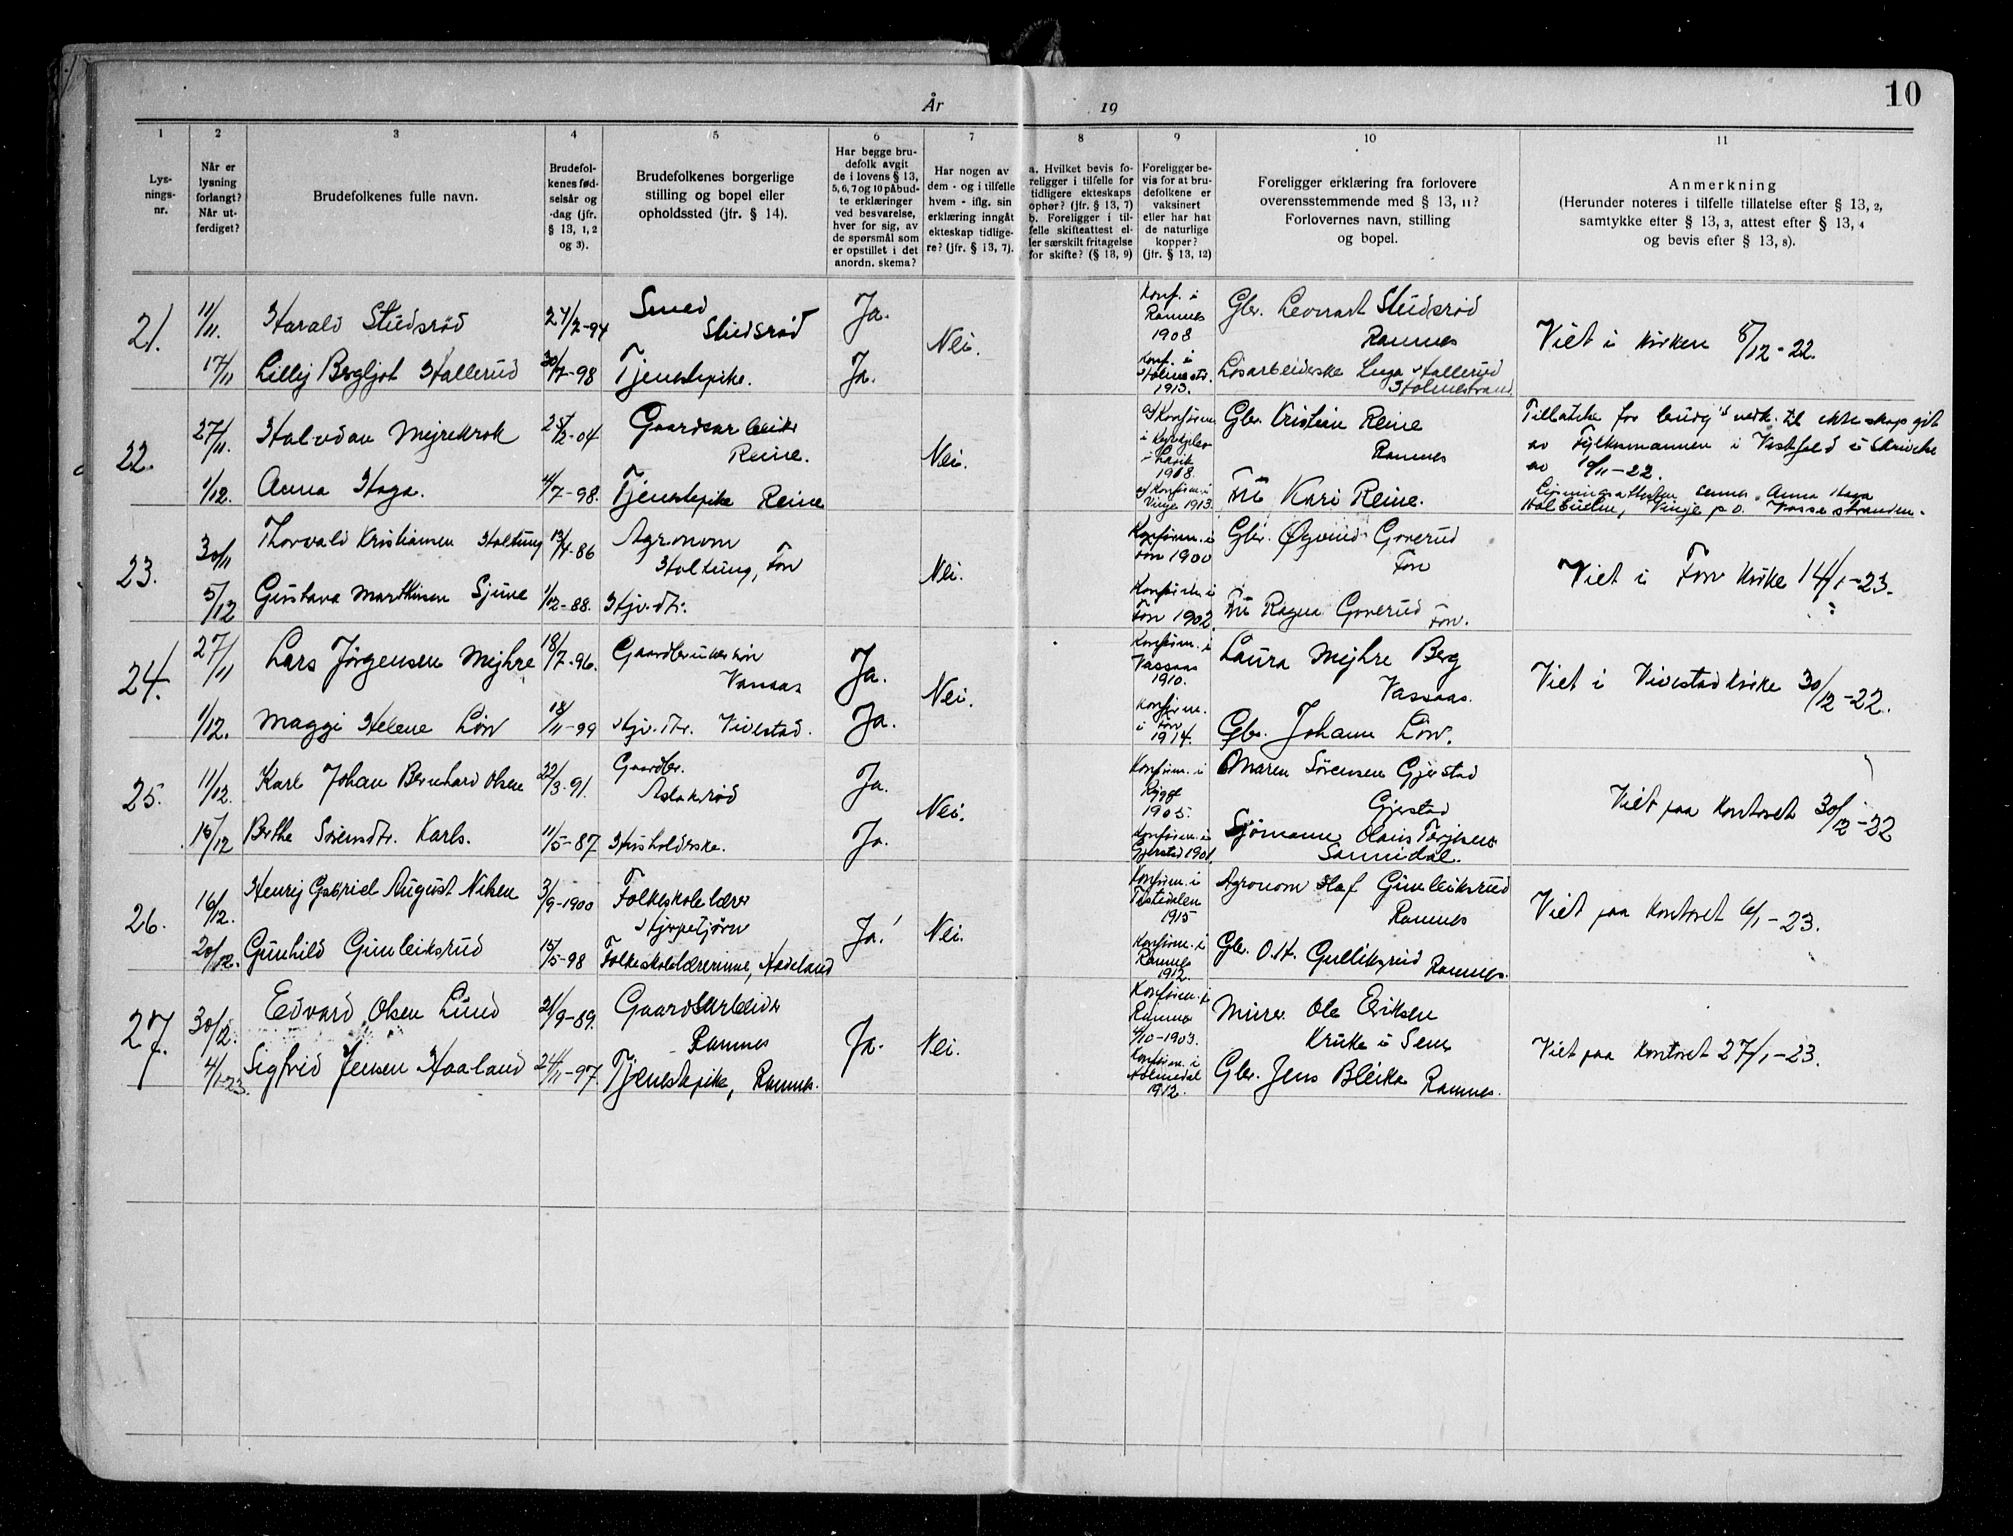 10
År 19
1 2 3 4 5 6 7 8 9 10 11
Lys-
nings-
nr.
Når er
lysning
forlangt?
Når ut-
ferdiget?
Brudefolkenes fulle navn.
Brudefol-
kenes fød-
selsår og
-dag (jfr.
§ 13, 1, 2
og 3).
Brudefolkenes borgerlige
stilling og bopel eller
opholdssted (jfr. § 14).
Har begge bru-
defolk avgit
de i lovens § 13,
5, 6, 7 og 10 påbud-
te erklæringer
ved besvarelse,
hver for sig, av
de spørsmål som
er opstillet i det
anordn. skema?
Har nogen av
dem - og i tilfelle
hvem - iflg. sin
erklæring inngåt
ekteskap tidlige-
re? (jfr. § 13, 7).
a. Hvilket bevis fo-
religger i tilfelle for
tidligere ekteskaps
ophør? (jfr. § 13, 7)
b. Foreligger i til-
felle skifteattest el-
ler særskilt fritagelse
for skifte? (§ 13, 9)
Foreligger be-
vis for at bru-
defolkene er
vaksinert
eller har hat
de naturlige
kopper?
(jfr. § 13, 12)
Foreligger erklæring fra forlovere
overensstemmende med § 13, 11?
Forlovernes navn, stilling
og bopel.
Anmerkning
(Herunder noteres i tilfelle tillatelse efter § 13, 2,
samtykke efter § 13, 3, attest efter § 13, 4
og bevis efter § 13, 8).
21.
11/11.
Harald Studsrød
24/2-94
Smed
Studsrød
Ja.
Nei.
Konf. i
Ramnes
1908
Gbr. Leonart Studsrød
Ramnes
Viet i kirken 8/12-22.
17/11
Lillij Bergljot Hallerud
30/7-98
Tjenestepike.
Ja.
Konf. i
Holmestr.
1913.
Løsarbeiderske Inga Hallerud
Holmestrand
22.
27/11.
Halvdan Mejrekrok
25/2-04
Gaardsarbeider
Reine.
Nei.
i
1918.
Gbr. Kristian Reine
Ramnes
Tillatelse for til ekteskap git
av Fylkesmannen i Vestfold i skrivelse
av 10/11-22.
1/12.
Anna Haga.
4/7-98.
Tjenestepike Reine
Vinje 1913.
Fru Kari Reine.
Lysningsattesten sennes Anna Haga
Vinje p.o. Vossestranden.
23.
30/11
Thorvald Kristiansen Holtung
13/4-86
Agronom
Holtung, Fon
Nei.
Konfirm. i
Fon 1900
Gbr. Øyvind Goverud
Fon
Viet i Fon Kirke 14/1-23.
5/12
Gustava Marthinsen Sjune
1/12-88.
Hjv. dtr.
Konfirm. i
Fon 1902
Fru Ragna Goverud
Fon.
24.
27/11
Lars Jørgensen Mejhre
18/7-96.
Vassaas
Ja.
Nei.
Konfirm. i
Vassaas
1910.
Laura Mejhre Berg
Vassaas.
Viet i Vivestad kirke 30/12-22.
1/12.
Maggi Helene Løw
18/11-99
Hjv. dtr. Vivestad.
Ja.
Konfirm.
i Fon
1914.
Gbr. Johann Løw.
25.
11/12.
Karl Johan Bernhard Olsen
22/3-91.
Gaardbr.
Aslaksrød
Ja.
Nei.
Konfirm. i
Rygge
1905.
Maren Sørensen Gjerstad
Gjerstad
Viet paa kontoret 30/12-22
15/12
Berthe Sørensdtr. Karls.
11/5-87.
Husholderske.
Ja.
Konfirm. i
Gjerstad 1901.
Sjømann Olaus Terjesen
Sannidal.
26.
16/12.
Henrij Gabriel August Nilsen
3/9-1900
Folkeskolelærer
Hjertetjørn
Ja!
Nei.
Konfirm. i
Tistedalen
1915
Agronom Olaf Gunleiksrud
Ramnes
Viet paa kontoret 6/1-23.
20/12.
Gunhild Gunleiksrud
15/5-98
Folkeskolelærerinne, Hadeland
Konfirm. i
Ramnes
1912.
Gbr. O. H. Gulliksrud Ramnes.
27.
30/12.
Edvard Olsen Lund
21/9-89.
Gaardsarbeider
Ramnes
Ja.
Nei.
Konfirm. i
Ramnes
4/10-1903.
Murer Ole Eriksen
Kruke i Sem
Viet paa kontoret 27/1-23.
4/1-23.
Sigfrid Jensen Haaland
24/11-97.
Tjenestepike, Ramnes.
Konfirm. i
Holmedal
1912.
Gbr. Jens Bleika Ramnes.